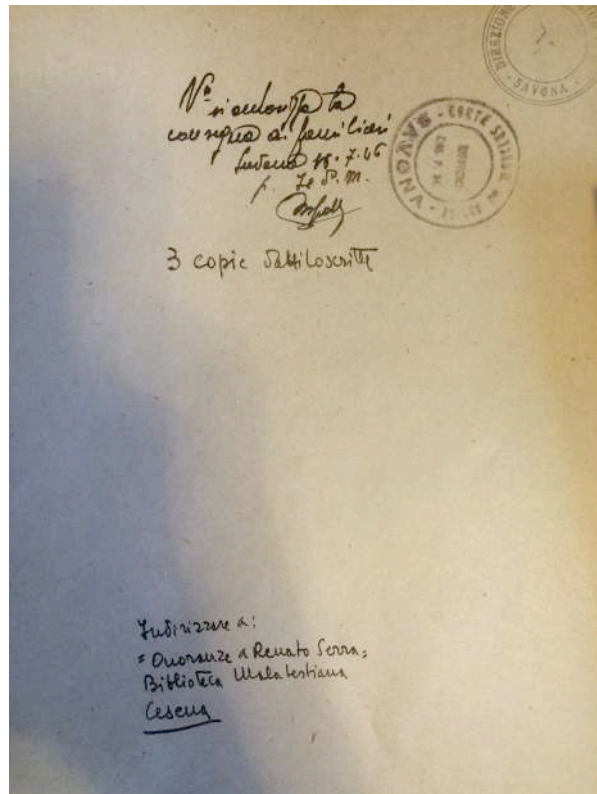 DIREZIONE
SAVONA
N° si autorizza la
consegna ai familiari
Savona 18.7.46
p. Il P.M.
SAVONA - CORTE
3 copie dattiloscritte
Indirizzare a:
= Onoranze a Renato Serra =
Biblioteca Malatestiana
Cesena